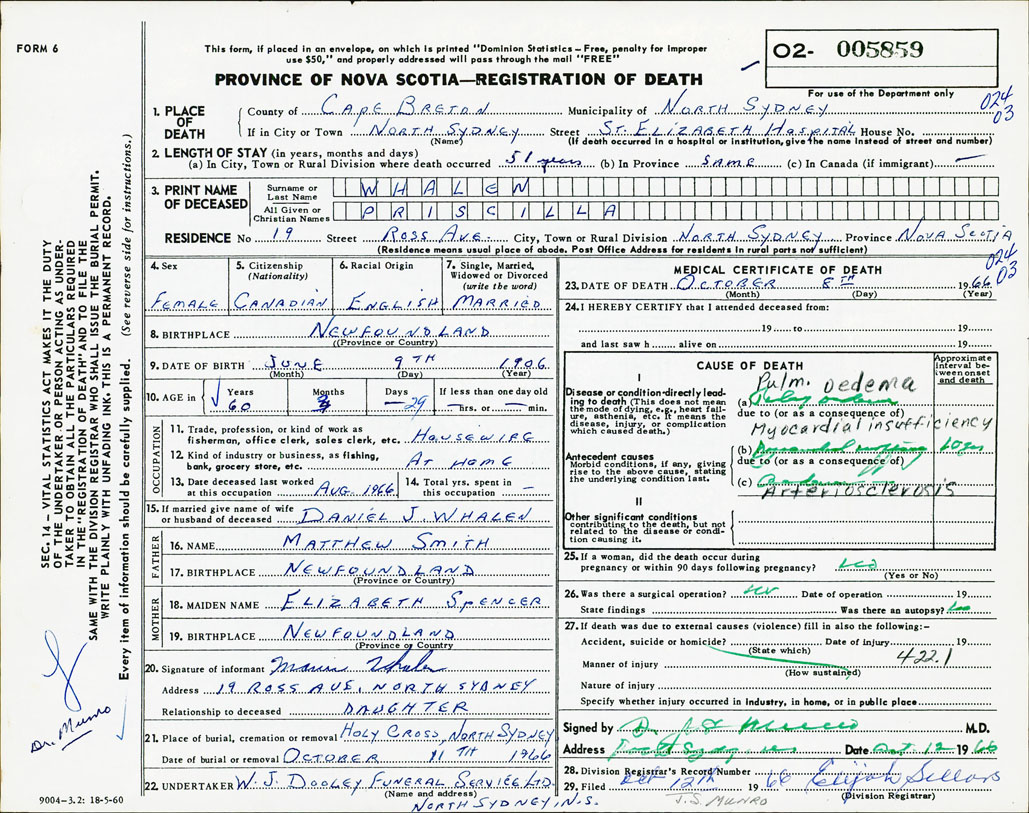 FORM 6
This form, if placed in an envelope, on which is printed "Dominion Statistics – Free, penalty for improper
use $50," and properly addressed will pass through the mail "FREE"
O2- 005859
PROVINCE OF NOVA SCOTIA—REGISTRATION OF DEATH
For use of the Department only
024
03
1. PLACE OF DEATH
County of CAPE BRETON Municipality of NORTH SYDNEY
If in City or Town NORTH SYDNEY Street ST. ELIZABETH HOSPITAL House No.
(Name) (If death occurred in a hospital or institution, give the name instead of street and number)
2. LENGTH OF STAY (in years, months and days)
(a) In City, Town or Rural Division where death occurred 51 years (b) In Province SAME (c) In Canada (if immigrant) —
3. PRINT NAME OF DECEASED
Surname or Last Name WHALEN
All Given or Christian Names PRISCILLA
RESIDENCE No 19 Street ROSS AVE. City, Town or Rural Division NORTH SYDNEY Province NOVA SCOTIA
(Residence means usual place of abode. Post Office Address for residents in rural parts not sufficient)
024
03
4. Sex
FEMALE
5. Citizenship
(Nationality)
CANADIAN
6. Racial Origin
ENGLISH
7. Single, Married, Widowed or Divorced
(write the word)
MARRIED
8. BIRTHPLACE NEWFOUNDLAND
(Province or Country)
9. DATE OF BIRTH JUNE 9TH 1906
(Month) (Day) (Year)
10. AGE in Years Months Days If less than one day old
60 3 — 29 hrs. or — min.
OCCUPATION
11. Trade, profession, or kind of work as
fisherman, office clerk, sales clerk, etc. HOUSEWIFE
12. Kind of industry or business, as fishing,
bank, grocery store, etc. AT HOME
13. Date deceased last worked
at this occupation AUG. 1966
14. Total yrs. spent in
this occupation —
15. If married give name of wife
or husband of deceased DANIEL J. WHALEN
FATHER
16. NAME MATTHEW SMITH
17. BIRTHPLACE NEWFOUNDLAND
(Province or Country)
MOTHER
18. MAIDEN NAME ELIZABETH SPENCER
19. BIRTHPLACE NEWFOUNDLAND
(Province or Country)
20. Signature of informant Whalen
Address 19 ROSS AVE. NORTH SYDNEY
Relationship to deceased DAUGHTER
21. Place of burial, cremation or removal HOLY CROSS, NORTH SYDNEY
Date of burial or removal OCTOBER 11TH 1966
22. UNDERTAKER W. J. DOOLEY FUNERAL SERVICE LTD
(Name and address)
NORTH SYDNEY, N.S.
9004–3.2: 18-5-60
MEDICAL CERTIFICATE OF DEATH
23. DATE OF DEATH OCTOBER 8TH 1966
(Month) (Day) (Year)
24. I HEREBY CERTIFY that I attended deceased from:
19 to 19
and last saw h alive on 19
CAUSE OF DEATH
Approximate interval between onset and death
I
Disease or condition-directly leading to death (This does not mean the mode of dying, e.g., heart failure, asthenia, etc. It means the disease, injury, or complication which caused death.)
Pulm. oedema
(a)
due to (or as a consequence of)
Myocardial insufficiency
Antecedent causes
Morbid conditions, if any, giving rise to the above cause, stating the underlying condition last.
(b)
due to (or as a consequence of)
(c)
Arteriosclerosis
II
Other significant conditions
contributing to the death, but not related to the disease or condition causing it.
25. If a woman, did the death occur during
pregnancy or within 90 days following pregnancy?
(Yes or No)
26. Was there a surgical operation? Date of operation 19
State findings Was there an autopsy?
27. If death was due to external causes (violence) fill in also the following:–
Accident, suicide or homicide? Date of injury 19
(State which)
422.1
Manner of injury
(How sustained)
Nature of injury
Specify whether injury occurred in industry, in home, or in public place
Signed by M.D.
Address Date Oct. 12 1966
28. Division Registrar's Record Number
29. Filed Oct 12th 1966 Elijah Sellars
(Division Registrar)
J.S. MUNRO
SEC. 14 – VITAL STATISTICS ACT MAKES IT THE DUTY
OF THE UNDERTAKER OR PERSON ACTING AS UNDER-
TAKER TO OBTAIN ALL THE PARTICULARS REQUIRED
IN THE "REGISTRATION OF DEATH" AND TO FILE THE
SAME WITH THE DIVISION REGISTRAR WHO SHALL ISSUE THE BURIAL PERMIT.
WRITE PLAINLY WITH UNFADING INK. THIS IS A PERMANENT RECORD.
Every item of information should be carefully supplied. (See reverse side for instructions.)
Dr. Munro